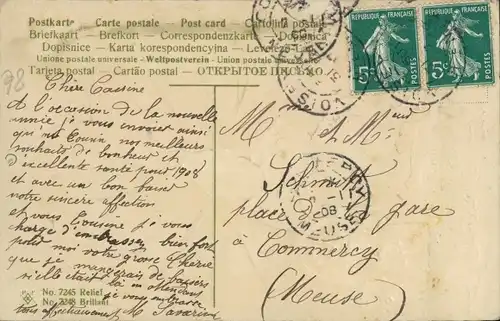 Postkarte — Carte postale — Post card — Cartolina postale
Briefkaart — Brefkort — Correspondenzkarte — Dopisnica
Dopisnice — Karta korespondencyjna — Levelező-Lap
Unione postale universale — Weltpostverein — Union postale universelle
Tarjeta postal — Cartão postal — ОТКРЫТОЕ ПИСЬМО
78
Chère Cousine
a l'occasion de la nouvelle
année je vous envoier ainsi
qu'au Cousin nos meilleurs
souhaits de bonheur et
d'excellente santé pour 1908
et avec un bon baiser
votre sincère affection
et vous Cousine je vous
charge d'embrasser bien fort
pour moi votre grosse Chérie
que je mangerais de baisers
si elle était là en attendant
je vous embrasse
tous affectueusement M
No. 7245 Relief
No. 7248 Brillant
REPUBLIQUE FRANÇAISE
5c
POSTES
REPUBLIQUE FRANÇAISE
5c
POSTES
MEUSE
08
Mr et Mme
Schmitt
place de gare
à Commercy
(Meuse)